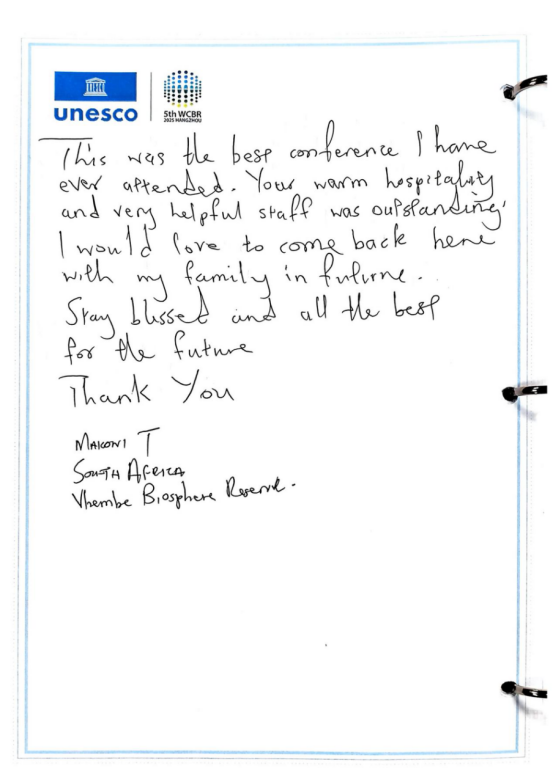 unesco
5th WCBR
2025 HANGZHOU
This was the best conference I have
ever attended. Your warm hospitality
and very helpful staff was outstanding.
I would love to come back here
with my family in future.
Stay blessed and all the best
for the future
Thank You
MAKONI T
SOUTH AFRICA
Vhembe Biosphere Reserve.